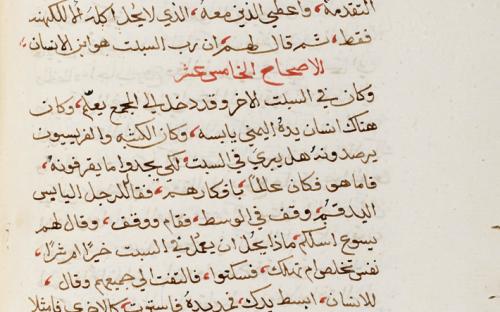 التقدمة، واعطي الذين معه، الذي لا يحل اكله الا للكهنه
فقط، ثم قال لهم، ان رب السبت هو ابن الانسان،
الاصحاح الخامس عشر
وكان في السبت الاخر وقد دخل الي المجمع يعلم، وكان
هناك انسان يده اليمني يابسه، وكان الكتبه والفريسيون
يرصدونه هل يبري في السبت لكي يجدوا ما يقرفونه،
فاما هو فكان عالما بافكارهم، فقال للرجل اليابس
اليد قم، وقف في الوسط، فقام ووقف، وقال لهم
يسوع اسلكم، ماذا يحل ان يعمل في السبت خيرا ام شرا،
نفس تخلص ام تهلك، فسكتوا، فالتفت الي جميعهم وقال،
للانسان، ابسط يدك، فمد يده فاستوت، كالاخري فامتلا